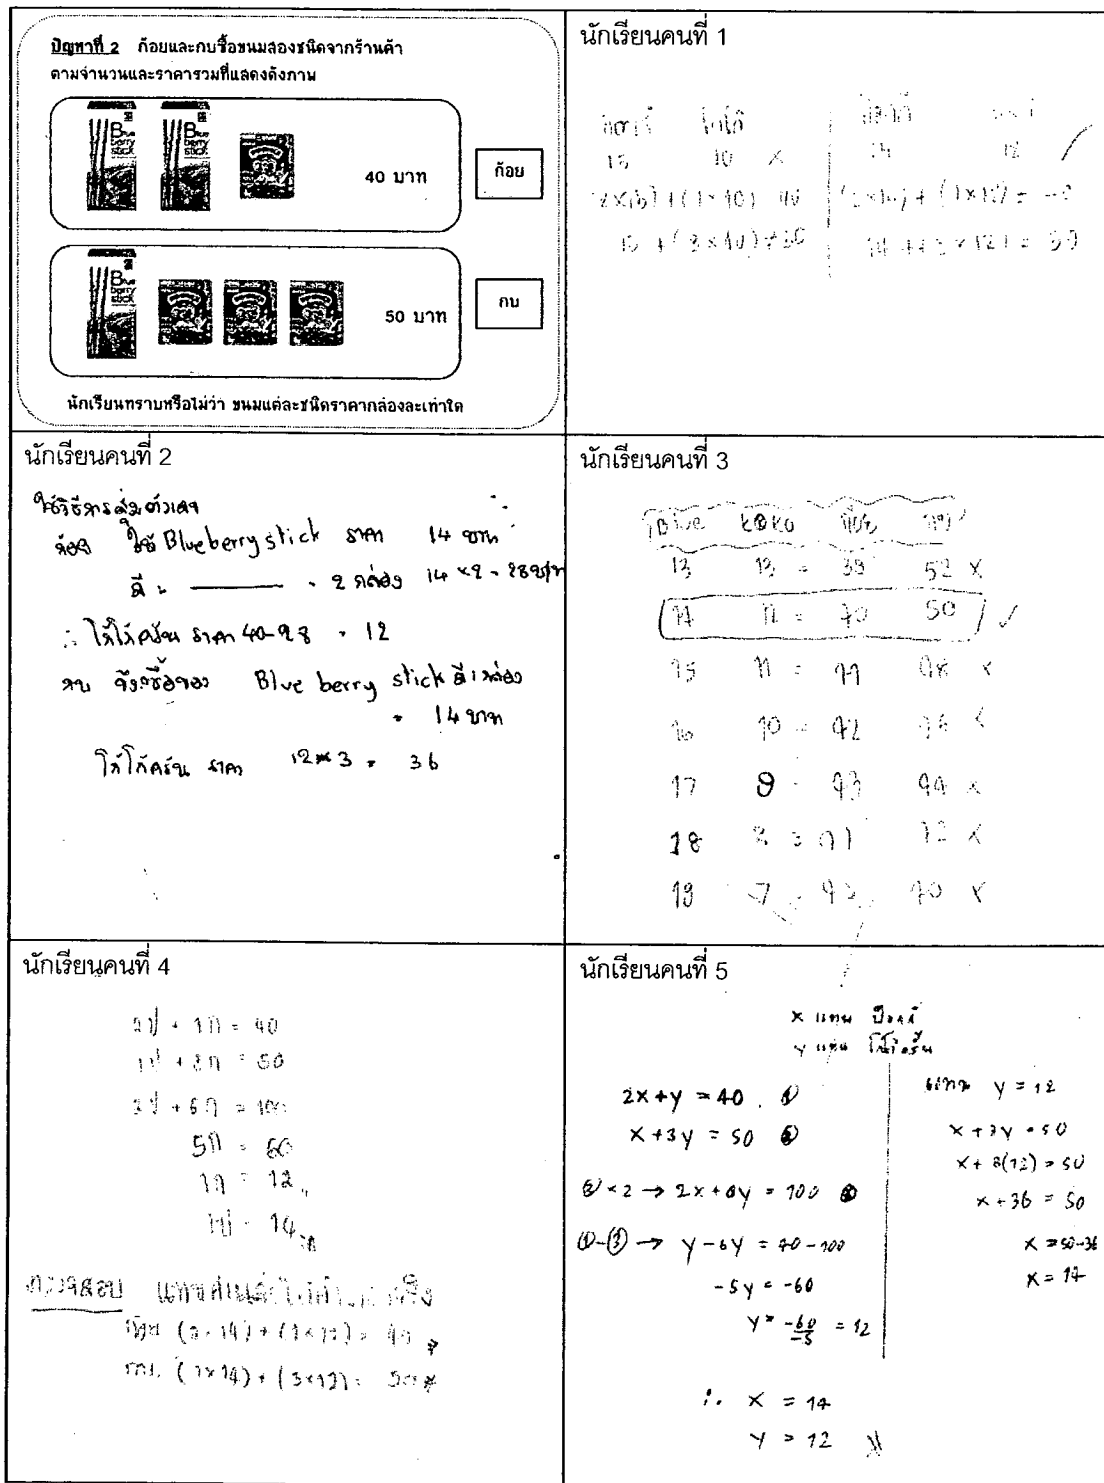 ปัญหาที่ 2 ก้อยและกบซื้อขนมสองชนิดจากร้านค้า
ตามจำนวนและราคารวมที่แสดงดังภาพ
Blue berry stick
Blue berry stick
40 บาท
ก้อย
Blue berry stick
50 บาท
กบ
นักเรียนทราบหรือไม่ว่า ขนมแต่ละชนิดราคากล่องละเท่าใด
นักเรียนคนที่ 1
15 10 ×
14 12
(2×15) + (1×10) 40
15 + (3×10) ≠ 50
14 + (3×12) = 50
นักเรียนคนที่ 2
ใช้วิธีการสุ่มตัวเลข
ก้อย ใช้ Blueberry stick ราคา 14 บาท
มี 2 กล่อง 14 × 2 = 28 บาท
∴ โก๋โก๋ครัน ราคา 40-28 = 12
กบ จึงซื้อของ Blue berry stick มี 1 กล่อง
= 14 บาท
โก๋โก๋ครัน ราคา 12 × 3 = 36
นักเรียนคนที่ 3
Blue koko ก้อย กบ
13 13 = 39 52 ×
14 12 = 40 50 ✓
15 11 = 41 48 ×
16 10 = 42 46 ×
17 9 = 43 44 ×
18 8
19 7 40 ×
นักเรียนคนที่ 4
2ป + 1ก = 40
1ป + 3ก = 50
2ป + 6ก = 100
5ก = 60
1ก = 12
1ป = 14
ตรวจสอบ
(2×14) + (1×12) = 40
กบ (1×14) + (3×12) = 50
นักเรียนคนที่ 5
x แทน
y แทน
2x + y = 40 ①
x + 3y = 50 ②
② × 2 → 2x + 6y = 100 ③
①-③ → y - 6y = 40 - 100
-5y = -60
y = -60/-5 = 12
แทน y = 12
x + 3y = 50
x + 3(12) = 50
x + 36 = 50
x = 50-36
x = 14
∴ x = 14
y = 12